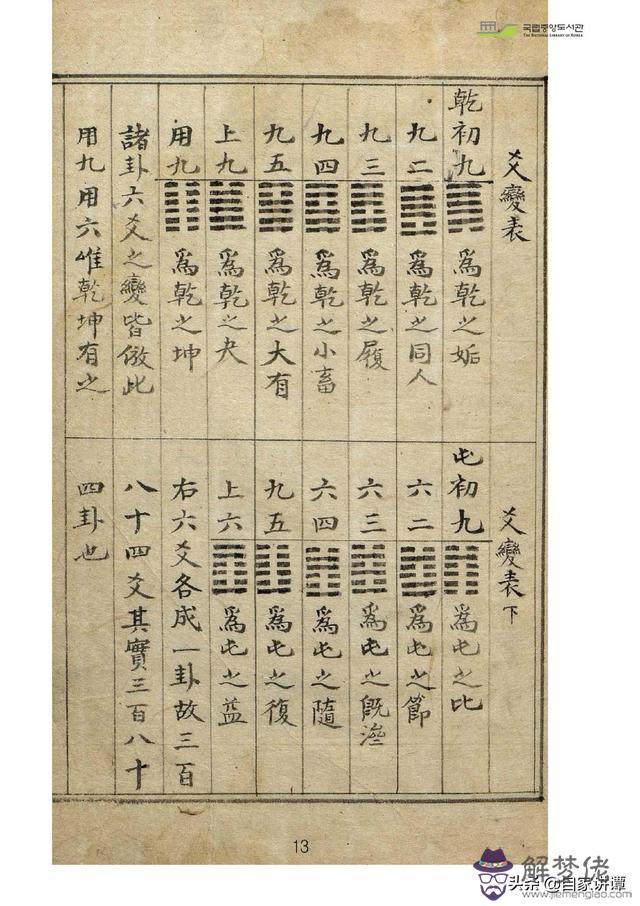 국립중앙도서관
THE NATIONAL LIBRARY OF KOREA
爻變表
乾初九 爲乾之姤
九二 爲乾之同人
九三 爲乾之履
九四 爲乾之小畜
九五 爲乾之大有
上九 爲乾之夬
用九 爲乾之坤
諸卦六爻之變皆倣此
用九用六唯乾坤有之
爻變表下
屯初九 爲屯之比
六二 爲屯之節
六三 爲屯之既濟
六四 爲屯之隨
九五 爲屯之復
上六 爲屯之益
右六爻各成一卦故三百
八十四爻其實三百八十
四卦也
13
解梦佬
头条 @自家讲谭
www.jiemenglao.com